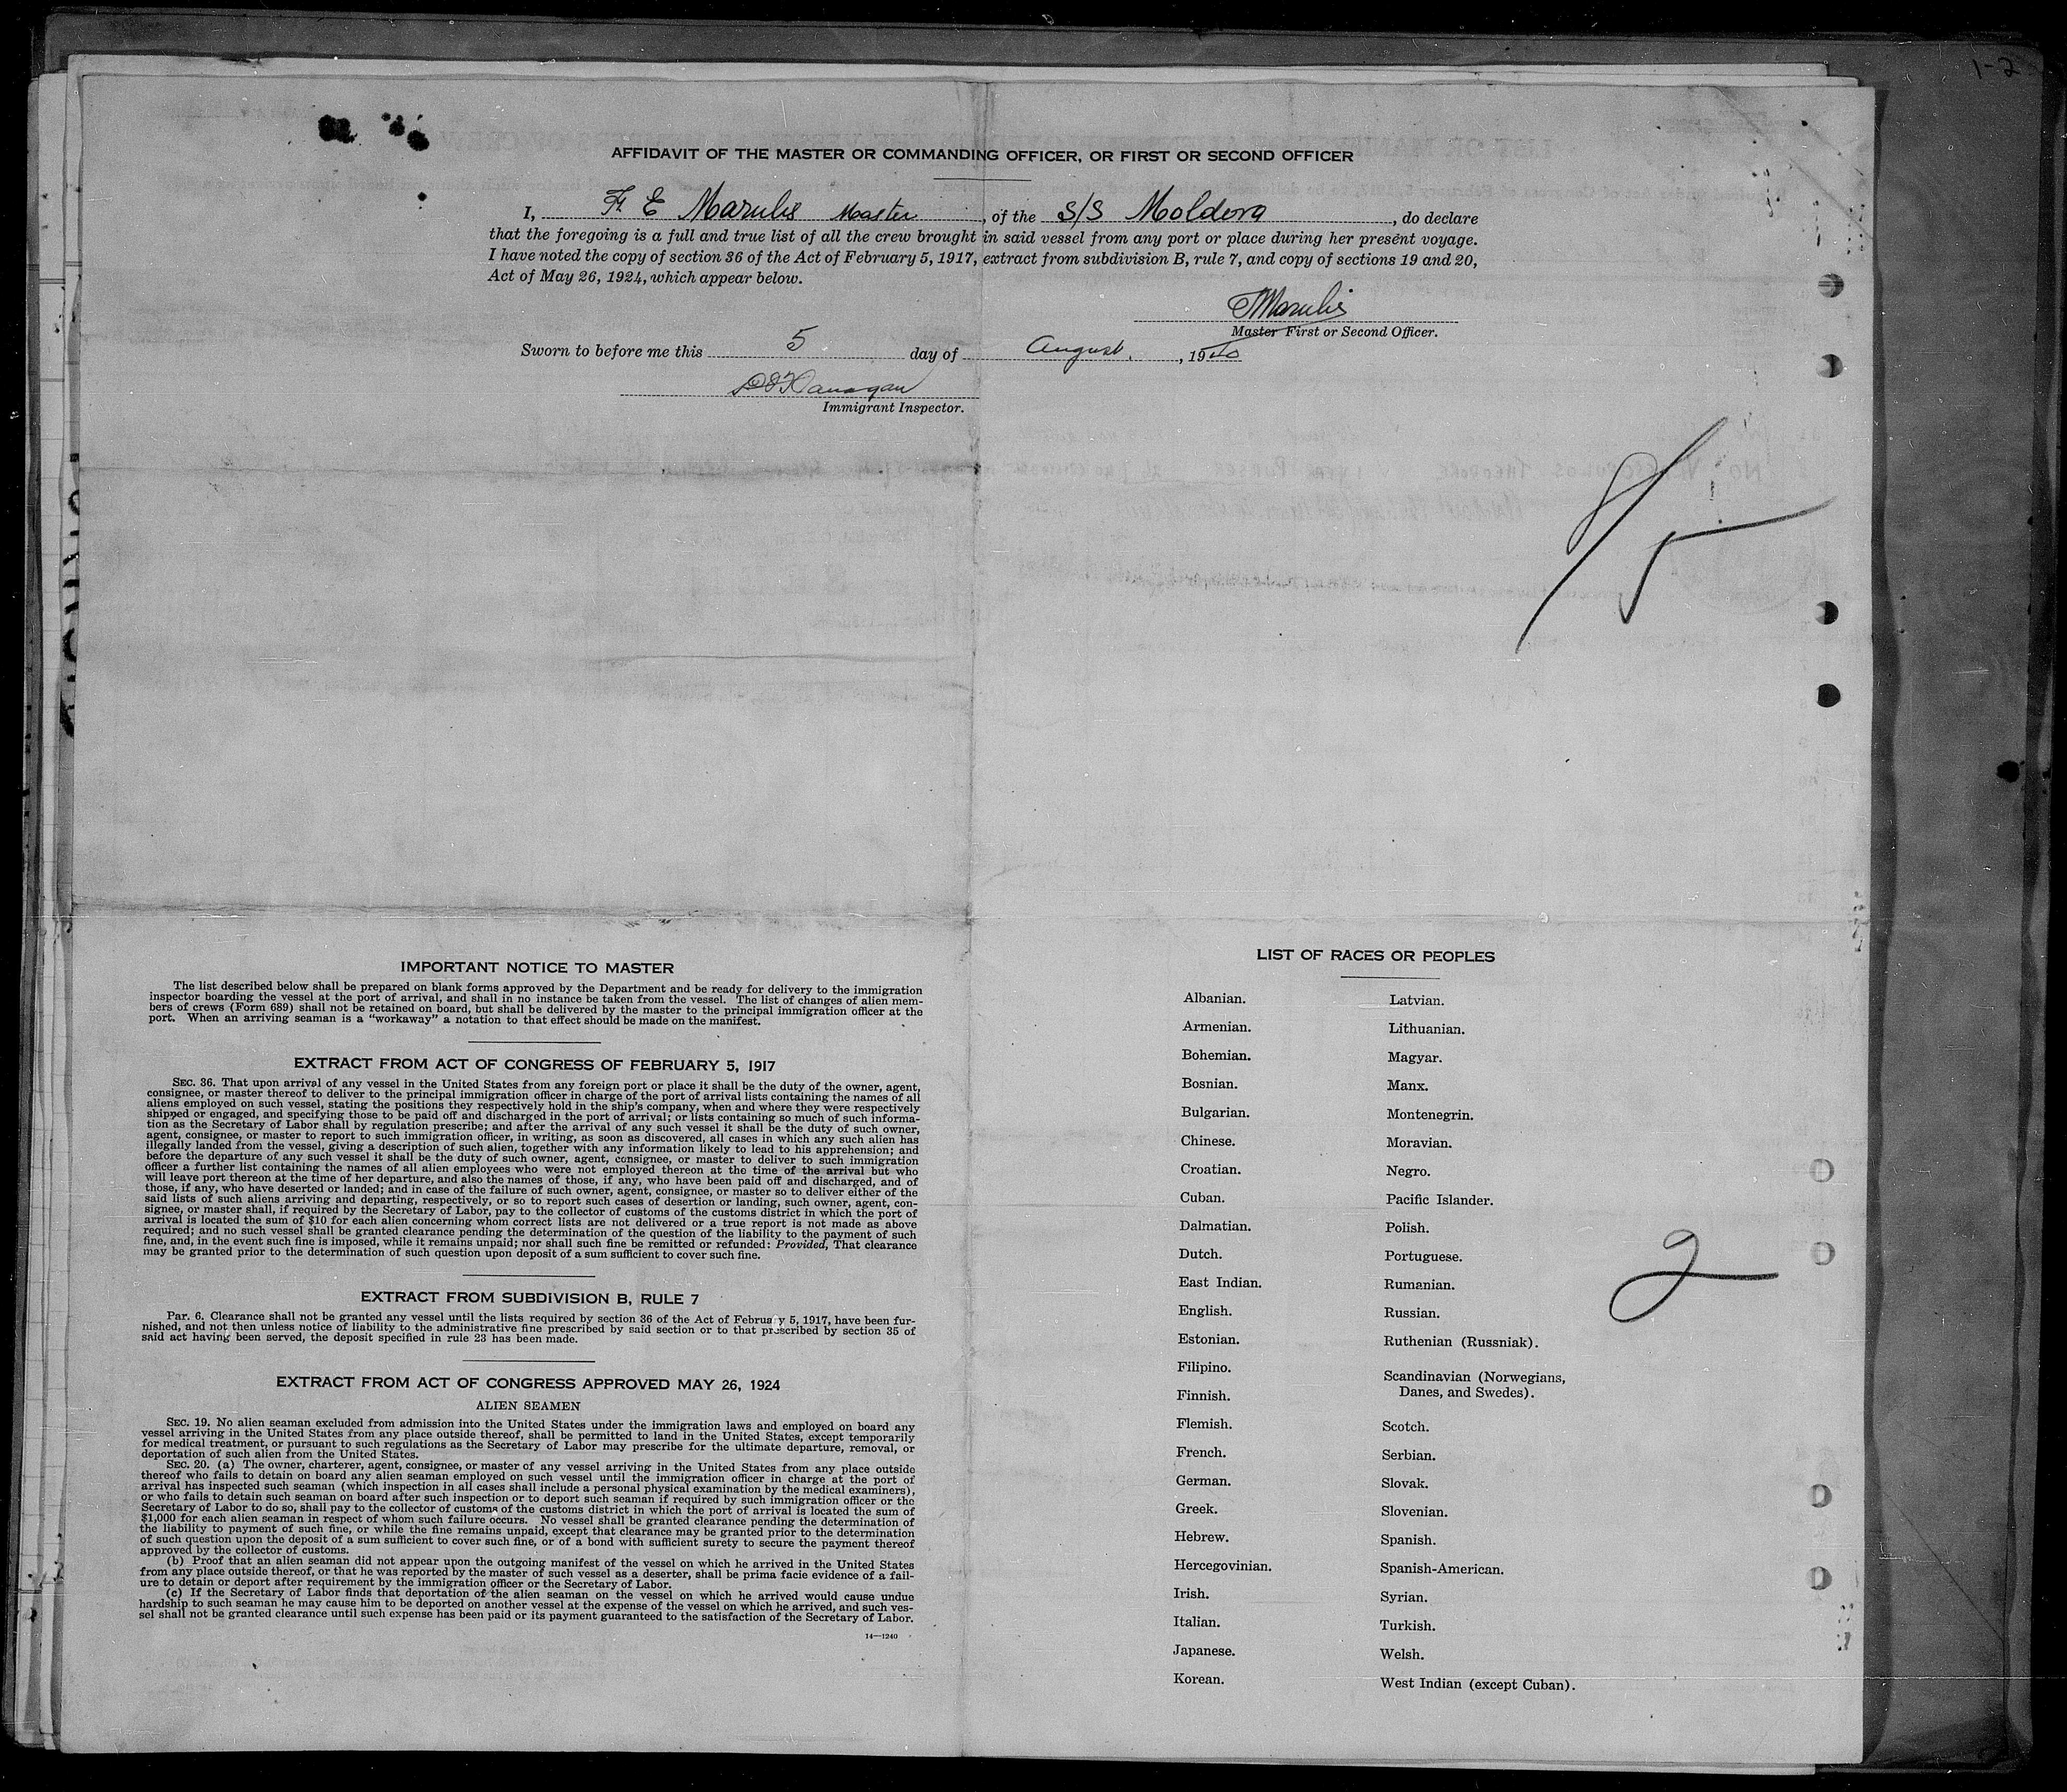 1-2
AFFIDAVIT OF THE MASTER OR COMMANDING OFFICER, OR FIRST OR SECOND OFFICER
I, F. E Marulis Master, of the S/S Moldova, do declare
that the foregoing is a full and true list of all the crew brought in said vessel from any port or place during her present voyage.
I have noted the copy of section 36 of the Act of February 5, 1917, extract from subdivision B, rule 7, and copy of sections 19 and 20,
Act of May 26, 1924, which appear below.
Marulis
Master First or Second Officer.
Sworn to before me this 5 day of August, 1940
Immigrant Inspector.
8/5
IMPORTANT NOTICE TO MASTER
The list described below shall be prepared on blank forms approved by the Department and be ready for delivery to the immigration
inspector boarding the vessel at the port of arrival, and shall in no instance be taken from the vessel. The list of changes of alien mem-
bers of crews (Form 689) shall not be retained on board, but shall be delivered by the master to the principal immigration officer at the
port. When an arriving seaman is a "workaway" a notation to that effect should be made on the manifest.
EXTRACT FROM ACT OF CONGRESS OF FEBRUARY 5, 1917
SEC. 36. That upon arrival of any vessel in the United States from any foreign port or place it shall be the duty of the owner, agent,
consignee, or master thereof to deliver to the principal immigration officer in charge of the port of arrival lists containing the names of all
aliens employed on such vessel, stating the positions they respectively hold in the ship's company, when and where they were respectively
shipped or engaged, and specifying those to be paid off and discharged in the port of arrival; or lists containing so much of such informa-
tion as the Secretary of Labor shall by regulation prescribe; and after the arrival of any such vessel it shall be the duty of such owner,
agent, consignee, or master to report to such immigration officer, in writing, as soon as discovered, all cases in which any such alien has
illegally landed from the vessel, giving a description of such alien, together with any information likely to lead to his apprehension; and
before the departure of any such vessel it shall be the duty of such owner, agent, consignee, or master to deliver to such immigration
officer a further list containing the names of all alien employees who were not employed thereon at the time of the arrival but who
will leave port thereon at the time of her departure, and also the names of those, if any, who have been paid off and discharged, and of
those, if any, who have deserted or landed; and in case of the failure of such owner, agent, consignee, or master so to deliver either of the
said lists of such aliens arriving and departing, respectively, or so to report such cases of desertion or landing, such owner, agent, con-
signee, or master shall, if required by the Secretary of Labor, pay to the collector of customs of the customs district in which the port of
arrival is located the sum of $10 for each alien concerning whom correct lists are not delivered or a true report is not made as above
required; and no such vessel shall be granted clearance pending the determination of the question of the liability to the payment of such
fine, and, in the event such fine is imposed, while it remains unpaid; nor shall such fine be remitted or refunded: Provided, That clearance
may be granted prior to the determination of such question upon deposit of a sum sufficient to cover such fine.
EXTRACT FROM SUBDIVISION B, RULE 7
Par. 6. Clearance shall not be granted any vessel until the lists required by section 36 of the Act of February 5, 1917, have been fur-
nished, and not then unless notice of liability to the administrative fine prescribed by said section or to that prescribed by section 35 of
said act having been served, the deposit specified in rule 23 has been made.
EXTRACT FROM ACT OF CONGRESS APPROVED MAY 26, 1924
ALIEN SEAMEN
SEC. 19. No alien seaman excluded from admission into the United States under the immigration laws and employed on board any
vessel arriving in the United States from any place outside thereof, shall be permitted to land in the United States, except temporarily
for medical treatment, or pursuant to such regulations as the Secretary of Labor may prescribe for the ultimate departure, removal, or
deportation of such alien from the United States.
SEC. 20. (a) The owner, charterer, agent, consignee, or master of any vessel arriving in the United States from any place outside
thereof who fails to detain on board any alien seaman employed on such vessel until the immigration officer in charge at the port of
arrival has inspected such seaman (which inspection in all cases shall include a personal physical examination by the medical examiners),
or who fails to detain such seaman on board after such inspection or to deport such seaman if required by such immigration officer or the
Secretary of Labor to do so, shall pay to the collector of customs of the customs district in which the port of arrival is located the sum of
$1,000 for each alien seaman in respect of whom such failure occurs. No vessel shall be granted clearance pending the determination of
the liability to payment of such fine, or while the fine remains unpaid, except that clearance may be granted prior to the determination
of such question upon the deposit of a sum sufficient to cover such fine, or of a bond with sufficient surety to secure the payment thereof
approved by the collector of customs.
(b) Proof that an alien seaman did not appear upon the outgoing manifest of the vessel on which he arrived in the United States
from any place outside thereof, or that he was reported by the master of such vessel as a deserter, shall be prima facie evidence of a fail-
ure to detain or deport after requirement by the immigration officer or the Secretary of Labor.
(c) If the Secretary of Labor finds that deportation of the alien seaman on the vessel on which he arrived would cause undue
hardship to such seaman he may cause him to be deported on another vessel at the expense of the vessel on which he arrived, and such ves-
sel shall not be granted clearance until such expense has been paid or its payment guaranteed to the satisfaction of the Secretary of Labor.
14—1240
LIST OF RACES OR PEOPLES
Albanian.
Armenian.
Bohemian.
Bosnian.
Bulgarian.
Chinese.
Croatian.
Cuban.
Dalmatian.
Dutch.
East Indian.
English.
Estonian.
Filipino.
Finnish.
Flemish.
French.
German.
Greek.
Hebrew.
Hercegovinian.
Irish.
Italian.
Japanese.
Korean.
Latvian.
Lithuanian.
Magyar.
Manx.
Montenegrin.
Moravian.
Negro.
Pacific Islander.
Polish.
Portuguese.
Rumanian.
Russian.
Ruthenian (Russniak).
Scandinavian (Norwegians,
Danes, and Swedes).
Scotch.
Serbian.
Slovak.
Slovenian.
Spanish.
Spanish-American.
Syrian.
Turkish.
Welsh.
West Indian (except Cuban).
2